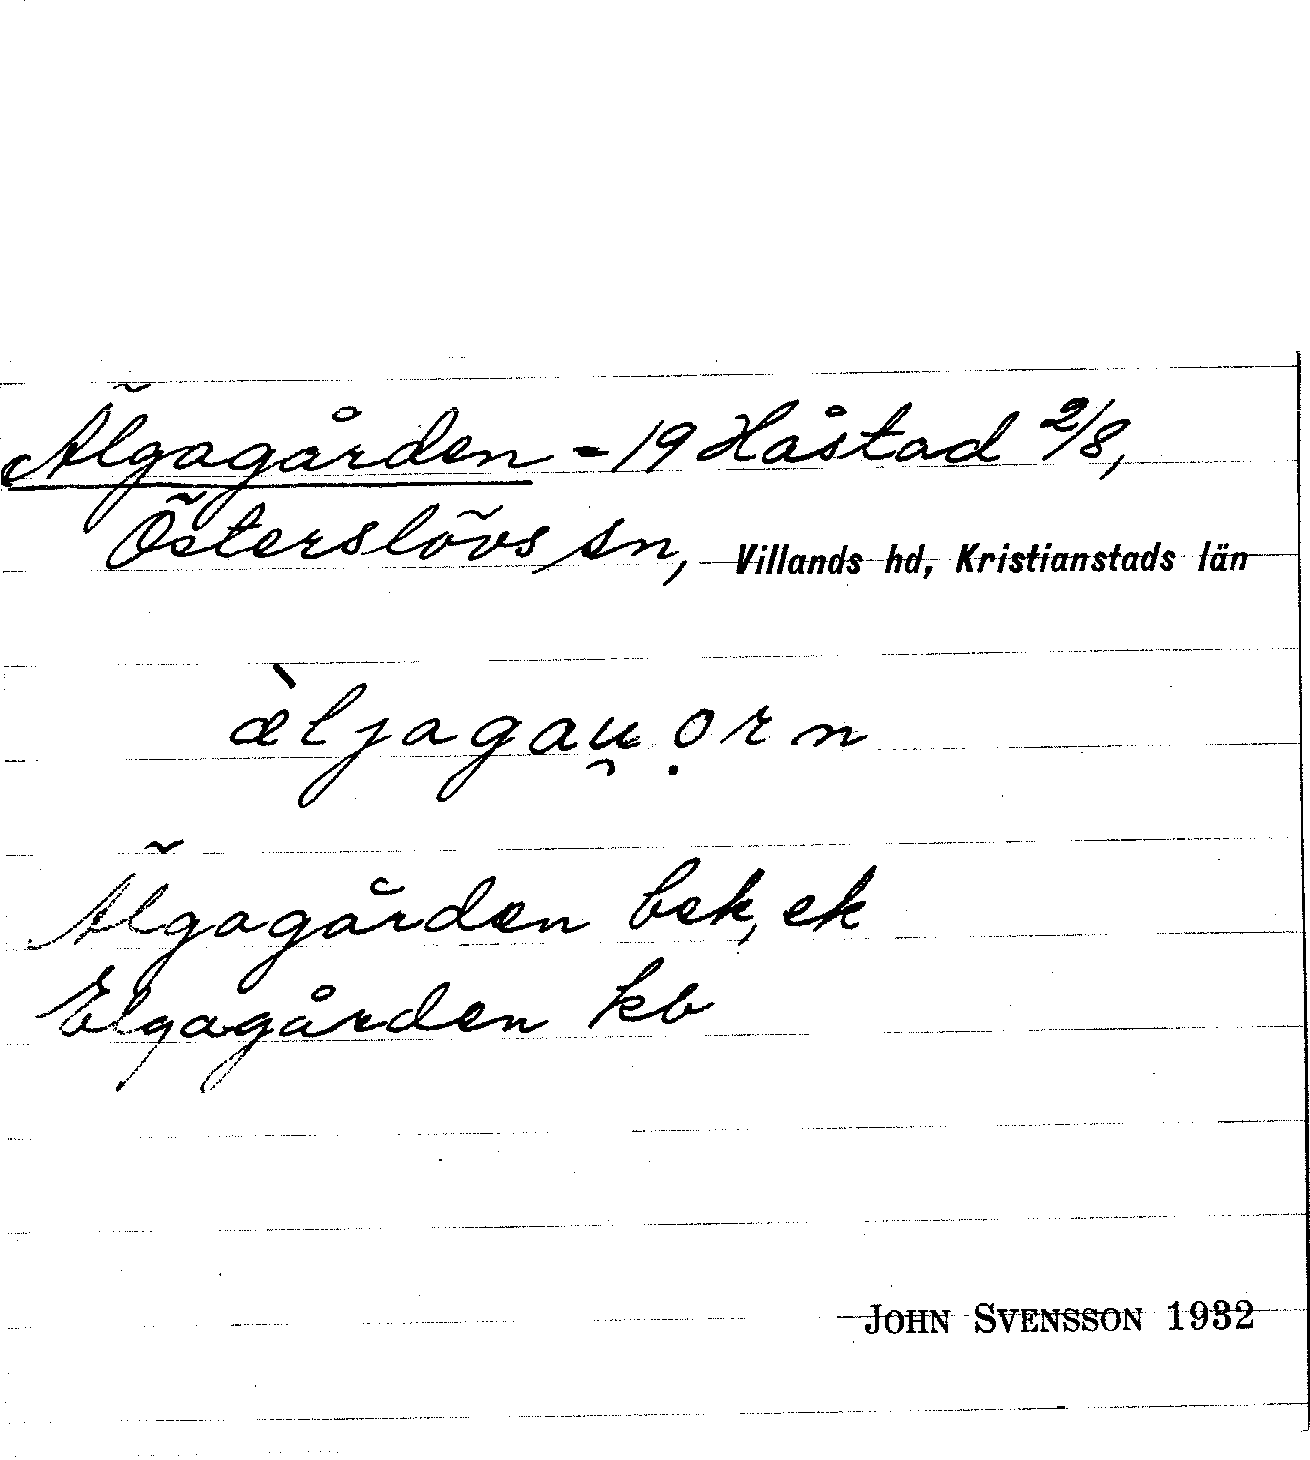 Älgagården = 19 Håstad 2/8,
Österslövs sn, Villands hd, Kristianstads län
æ̀ljagau̯ọrn
Älgagården bek, ek
Elgagården kb
JOHN SVENSSON 1932